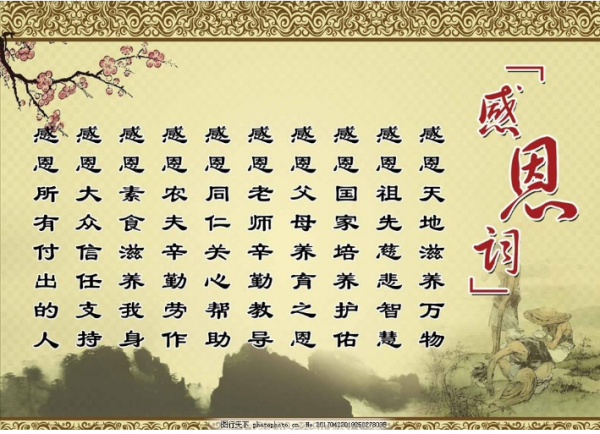 「感恩词」
感恩天地滋养万物
感恩祖先慈悲智慧
感恩国家培养护佑
感恩父母养育之恩
感恩老师辛勤教导
感恩同仁关心帮助
感恩农夫辛勤劳作
感恩素食滋养我身
感恩大众信任支持
感恩所有付出的人
图行天下 photophoto.cn No.20170422019250278098